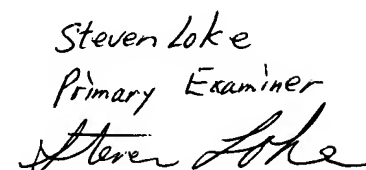 Steven Loke
Primary Examiner
Steven Loke